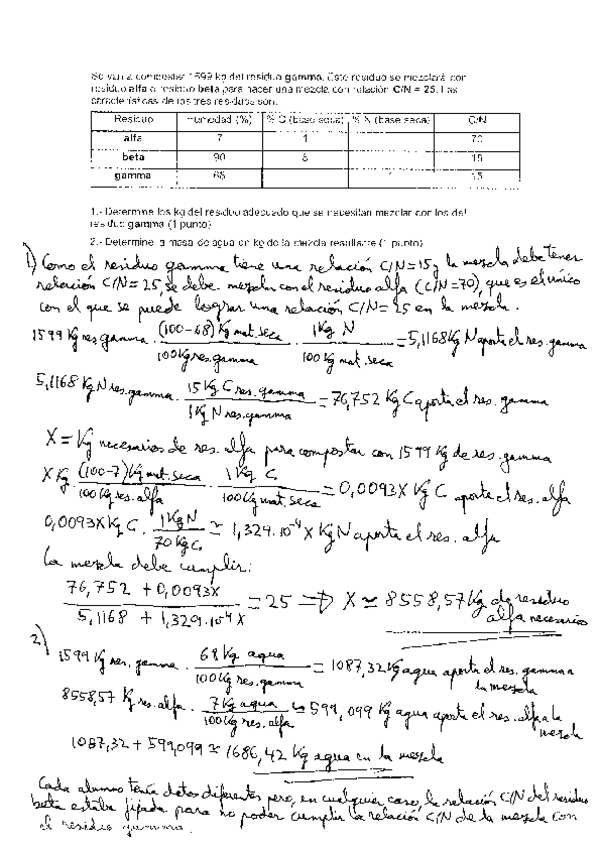 Se van a compostar 1599 kg del residuo gamma. Este residuo se mezclará con
residuo alfa o residuo beta para hacer una mezcla con relación C/N = 25. Las
características de los tres residuos son:
Residuo humedad (%) % C (base seca) % N (base seca) C/N
alfa 7 1 70
beta 90 8 15
gamma 68 1 15
1.- Determine los kg del residuo adecuado que se necesitan mezclar con los del
residuo gamma (1 punto)
2.- Determine la masa de agua en kg de la mezcla resultante (1 punto)
1) Como el residuo gamma tiene una relación C/N=15 y la mezcla debe tener
relación C/N=25, se debe mezclar con el residuo alfa (C/N=70) que es el único
con el que se puede lograr una relación C/N=25 en la mezcla.
1599 Kg res. gamma · (100-68) Kg mat. seca / 100 Kg res. gamma · 1 Kg N / 100 Kg mat. seca = 5,1168 Kg N aporta el res. gamma
5,1168 Kg N res. gamma · 15 Kg C res. gamma / 1 Kg N res. gamma = 76,752 Kg C aporta el res. gamma
X = Kg necesarios de res. alfa para compostar con 1599 Kg de res. gamma
X Kg · (100-7) Kg mat. seca / 100 Kg res. alfa · 1 Kg C / 100 Kg mat. seca = 0,0093X Kg C aporta el res. alfa
0,0093X Kg C · 1 Kg N / 70 Kg C ≃ 1,329·10⁻⁴ X Kg N aporta el res. alfa
La mezcla debe cumplir:
76,752 + 0,0093X / 5,1168 + 1,329·10⁻⁴ X = 25 ⇒ X ≃ 8558,57 Kg de residuo
alfa necesarios
2) 1599 Kg res. gamma · 68 Kg agua / 100 Kg res. gamma = 1087,32 Kg agua aporta el res. gamma a
la mezcla
8558,57 Kg res. alfa · 7 Kg agua / 100 Kg res. alfa ≃ 599,099 Kg agua aporta el res. alfa a la
mezcla
1087,32 + 599,099 ≃ 1686,42 Kg agua en la mezcla
Cada alumno tenía datos diferentes pero, en cualquier caso, la relación C/N del residuo
beta estaba fijada para no poder cumplir la relación C/N de la mezcla con
el residuo gamma.